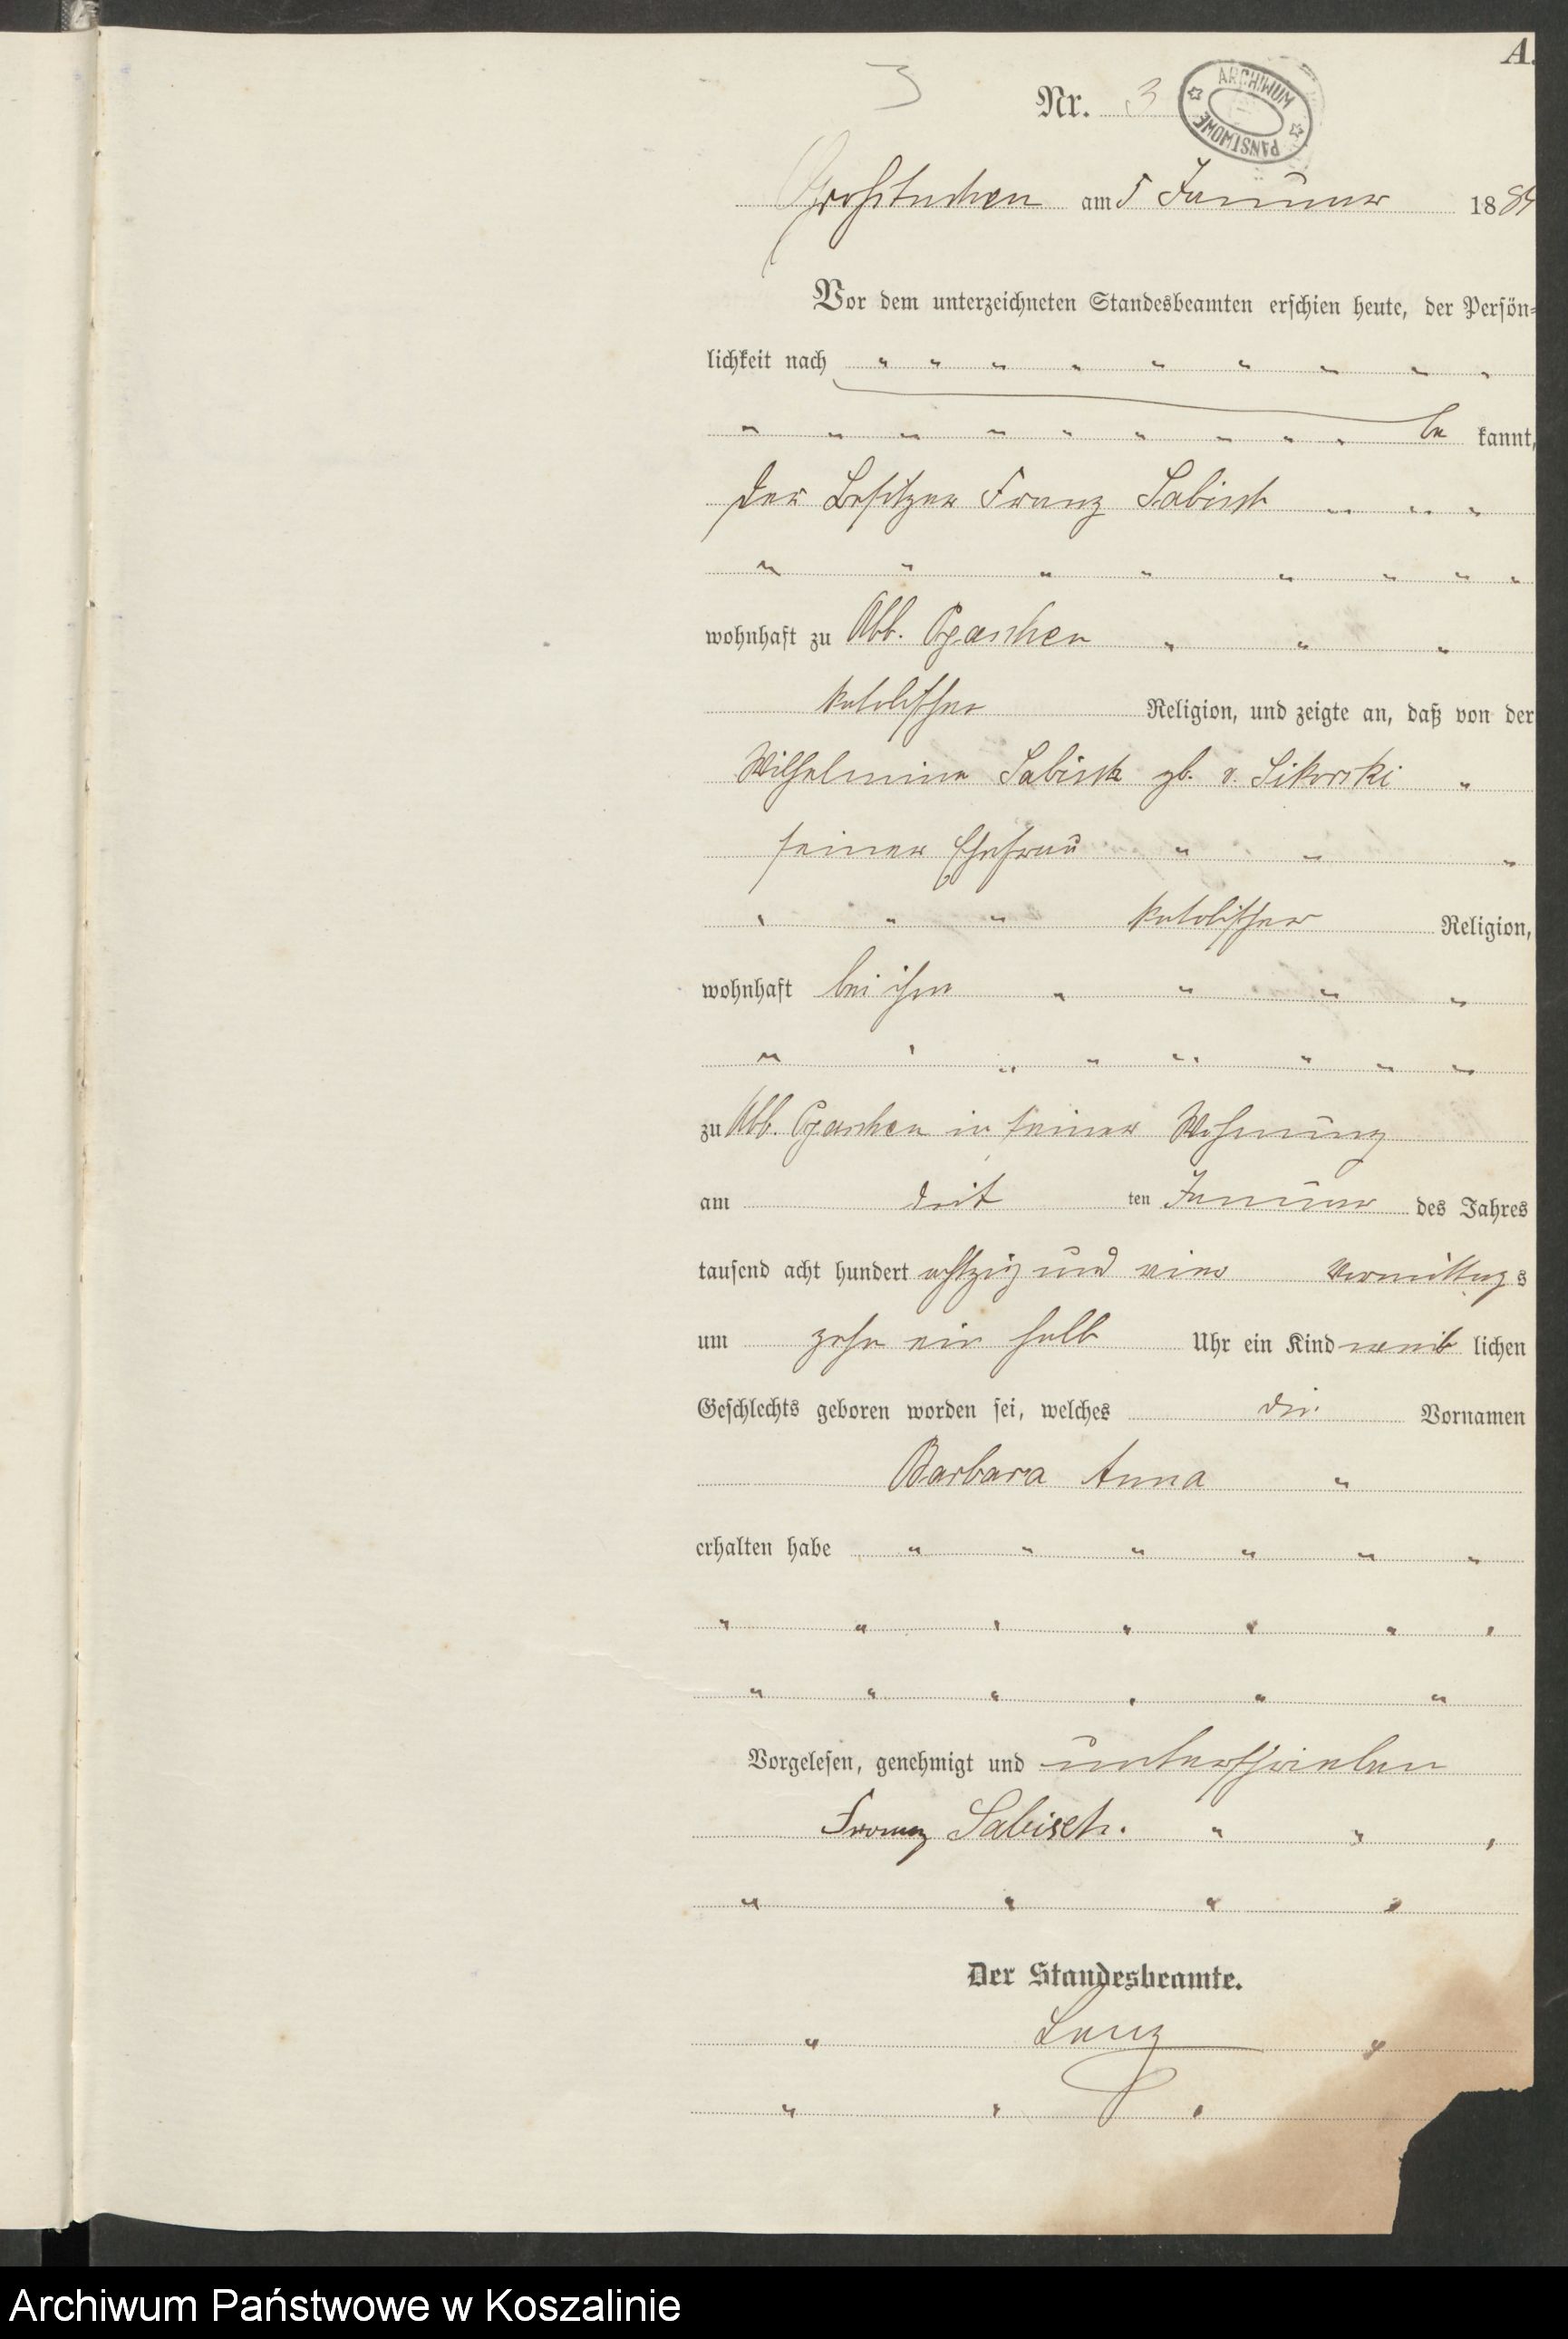 A.
3
Nr. 3
ARCHIWUM PAŃSTWOWE
Großtuchen am 5 Januar 1884
Vor dem unterzeichneten Standesbeamten erschien heute, der Persön-
lichkeit nach
be kannt,
der Besitzer Franz Sabisch
wohnhaft zu Abb.
katolischer Religion, und zeigte an, daß von der
Wilhelmine Sabisch gb. v. Sikorski
seiner Ehefrau
katolischer Religion,
wohnhaft bei ihm
zu Abb. in seiner Wohnung
am drit ten Januar des Jahres
tausend acht hundert achtzig und vier Vormittags
um zehn ein halb Uhr ein Kind weib lichen
Geschlechts geboren worden sei, welches die Vornamen
Barbara Anna
erhalten habe
Vorgelesen, genehmigt und unterschrieben
Franz Sabisch.
Der Standesbeamte.
Lenz
Archiwum Państwowe w Koszalinie